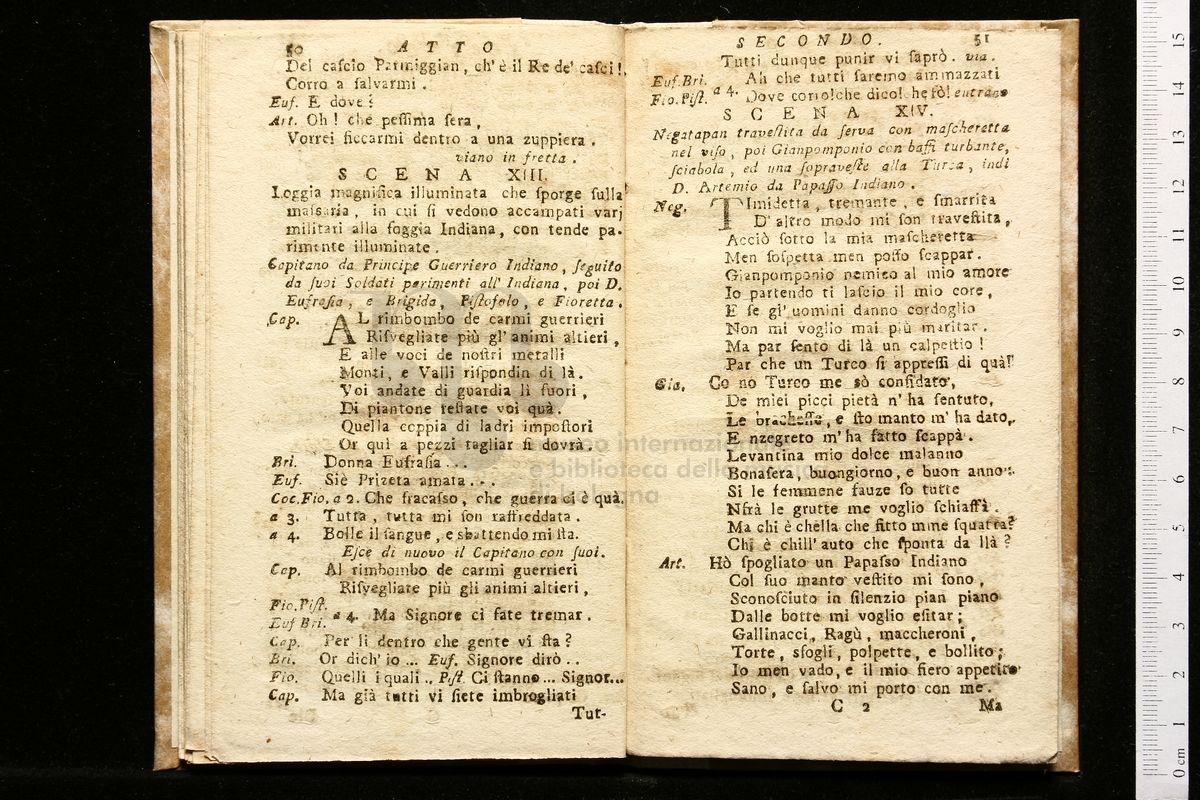 50 ATTO
Del caſcio Parmiggian, ch' è il Re de' caſci!
Corro a ſalvarmi.
Euf. E dove?
Art. Oh! che peſſima ſera,
Vorrei ficcarmi dentro a una zuppiera.
viano in fretta.
SCENA XIII.
Loggia magnifica illuminata che ſporge ſulla
maſsaria, in cui ſi vedono accampati varj
militari alla foggia Indiana, con tende pa-
rimente illuminate.
Capitano da Principe Guerriero Indiano, ſeguito
da ſuoi Soldati parimenti all' Indiana, poi D.
Eufraſia, e Brigida, Piſtofolo, e Fioretta.
Cap. AL rimbombo de carmi guerrieri
Riſvegliate più gl' animi altieri,
E alle voci de noſtri metalli
Monti, e Valli riſpondin di là.
Voi andate di guardia lì fuori,
Di piantone reſtate voi quà.
Quella coppia di ladri impoſtori
Or quì a pezzi tagliar ſi dovrà.
Bri. Donna Eufraſia...
Euf. Siè Prizeta amata...
Coc. Fio. a 2. Che fracaſſo, che guerra ci è quà.
a 3. Tutta, tutta mi ſon raffreddata.
a 4. Bolle il ſangue, e sbattendo mi ſta.
Eſce di nuovo il Capitano con ſuoi.
Cap. Al rimbombo de carmi guerrieri
Riſvegliate più gli animi altieri,
Fio. Piſt.
Euf Bri. a 4. Ma Signore ci fate tremar.
Cap. Per lì dentro che gente vi ſta?
Bri. Or dich' io ... Euf. Signore dirò..
Fio. Quelli i quali.. Piſt. Ci ſtanno... Signor...
Cap. Ma già tutti vi ſiete imbrogliati
Tut-
SECONDO. 51
Tutti dunque punir vi ſaprò. via.
Euf. Bri.
Fio. Piſt. a 4. Ah che tutti ſaremo ammazzati
Dove corro! che dico! che fò! entrano
SCENA XIV.
Negatapan traveſtita da ſerva con maſcheretta
nel viſo, poi Gianpomponio con baffi turbante,
ſciabola, ed una ſopraveſte alla Turca, indi
D. Artemio da Papaſſo Indiano.
Neg. TImidetta, tremante, e ſmarrita
D' altro modo mi ſon traveſtita,
Acciò ſotto la mia maſcheretta
Men ſoſpetta men poſſo ſcappar.
Gianpomponio nemico al mio amore
Io partendo ti laſcio il mio core,
E ſe gl' uomini danno cordoglio
Non mi voglio mai più maritar.
Ma par ſento di là un calpeſtio!
Par che un Turco ſi appreſſi di quà!
Gia. Co no Turco me sò confidato,
De miei picci pietà n' ha ſentuto,
Le bracheſſe, e ſto manto m' ha dato,
E nzegreto m' ha fatto ſcappà.
Levantina mio dolce malanno
Bonaſera, buongiorno, e buon anno:
Si le femmene fauze ſo tutte
Nfrà le grutte me voglio ſchiaffà.
Ma chi è chella che fitto mme ſquatra?
Chi è chill' auto che ſponta da llà?
Art. Hò ſpogliato un Papaſso Indiano
Col ſuo manto veſtito mi ſono,
Sconoſciuto in ſilenzio pian piano
Dalle botte mi voglio eſitar;
Gallinacci, Ragù, maccheroni,
Torte, sfogli, polpette, e bollito;
Io men vado, e il mio fiero appetito
Sano, e ſalvo mi porto con me.
C 2 Ma
15
14
13
12
11
10
9
8
7
6
5
4
3
2
1
0 cm